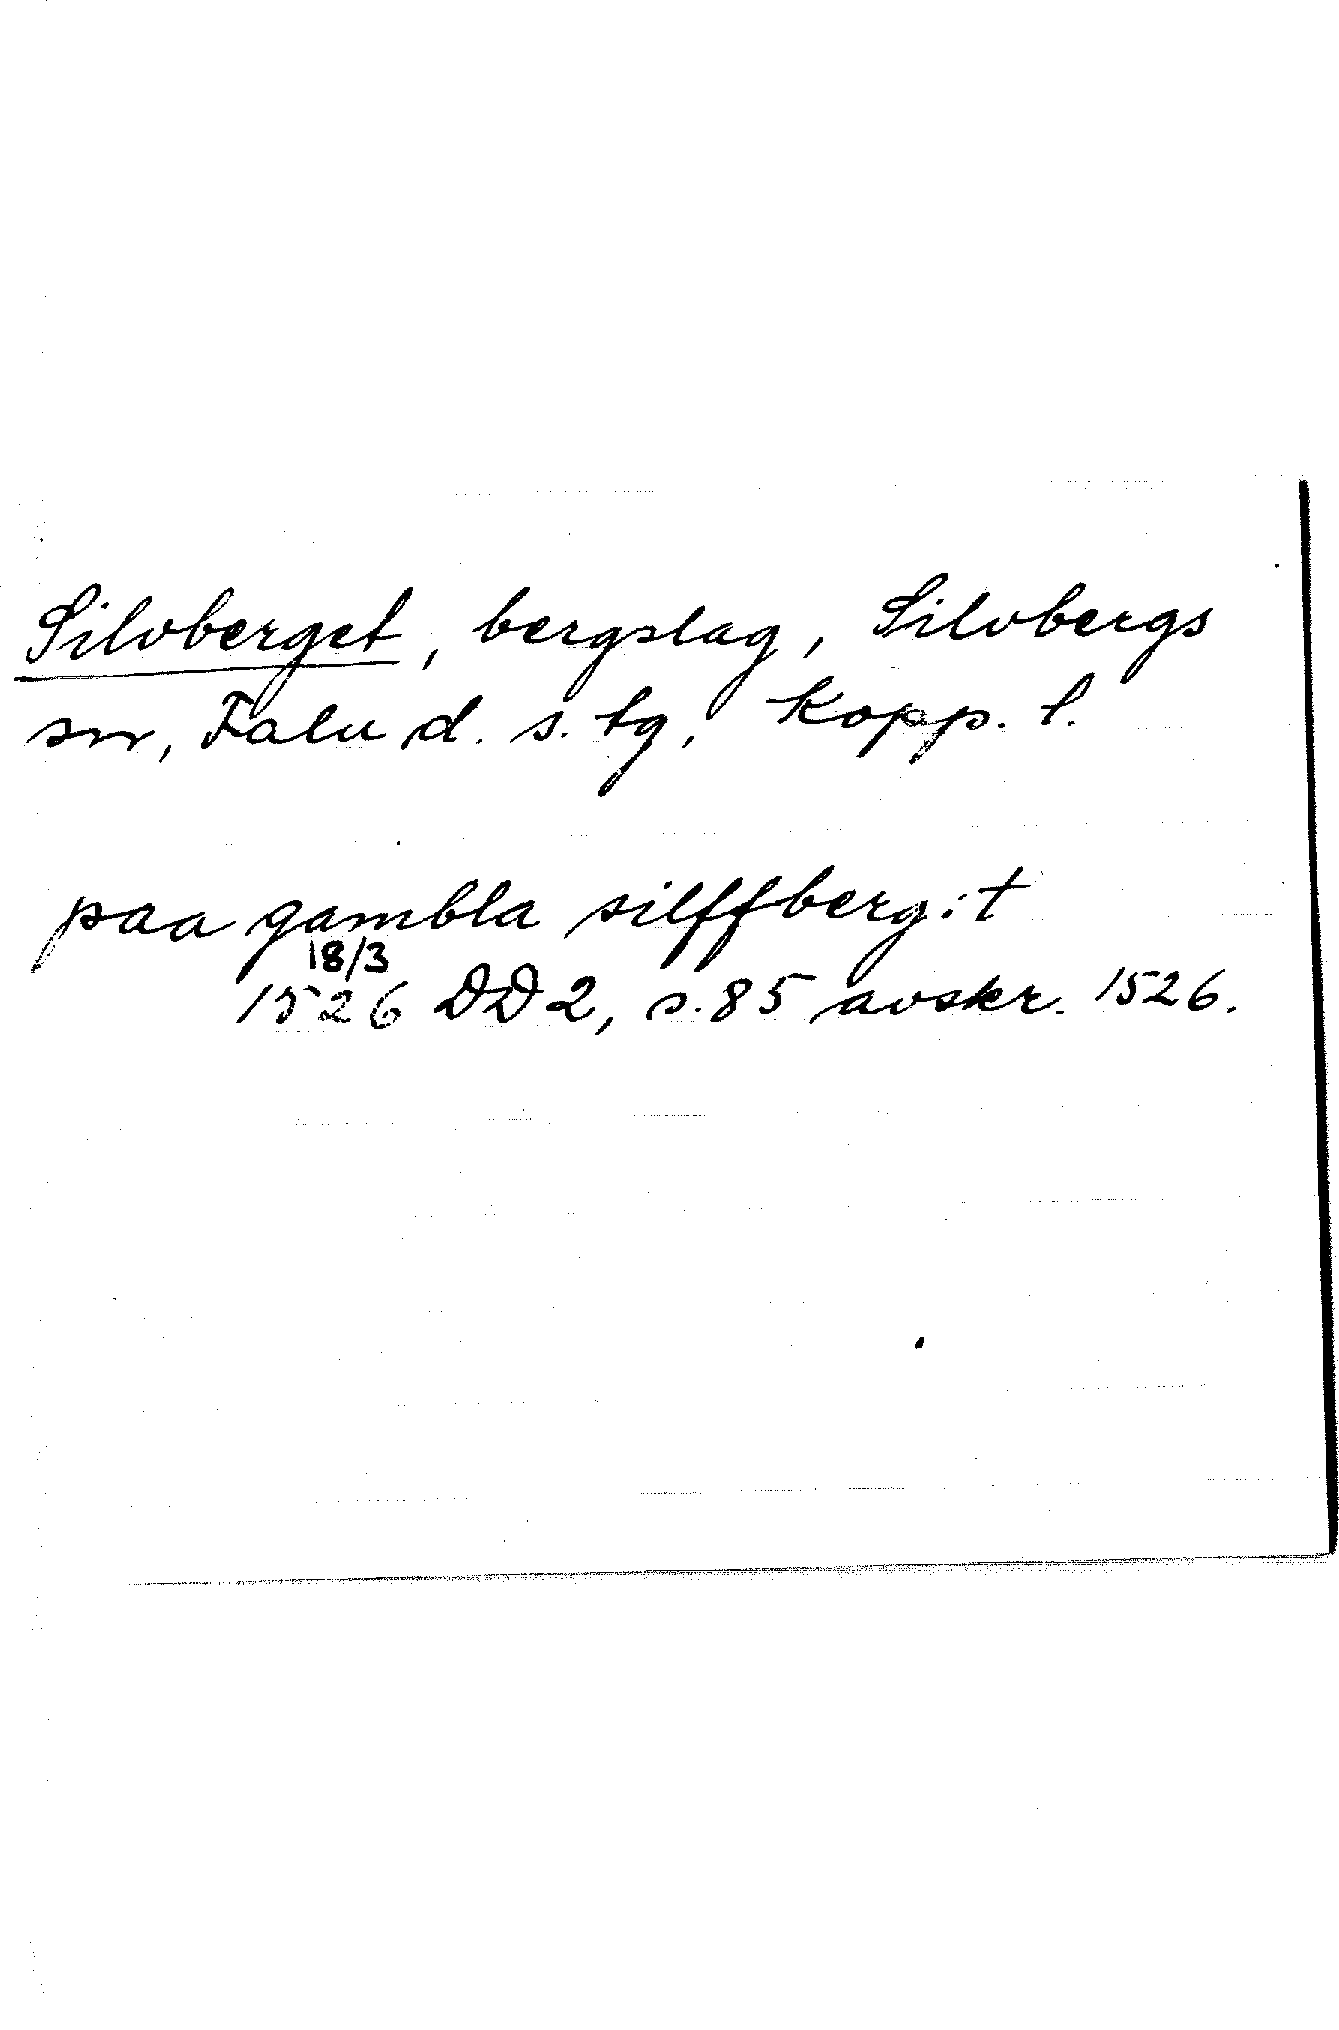 Silvberget, bergslag, Silvbergs
sn, Falu d. s. tg, Kopp. l.
paa gambla silffberg:t
18/3
1526 DD2, s. 85 avskr. 1526.